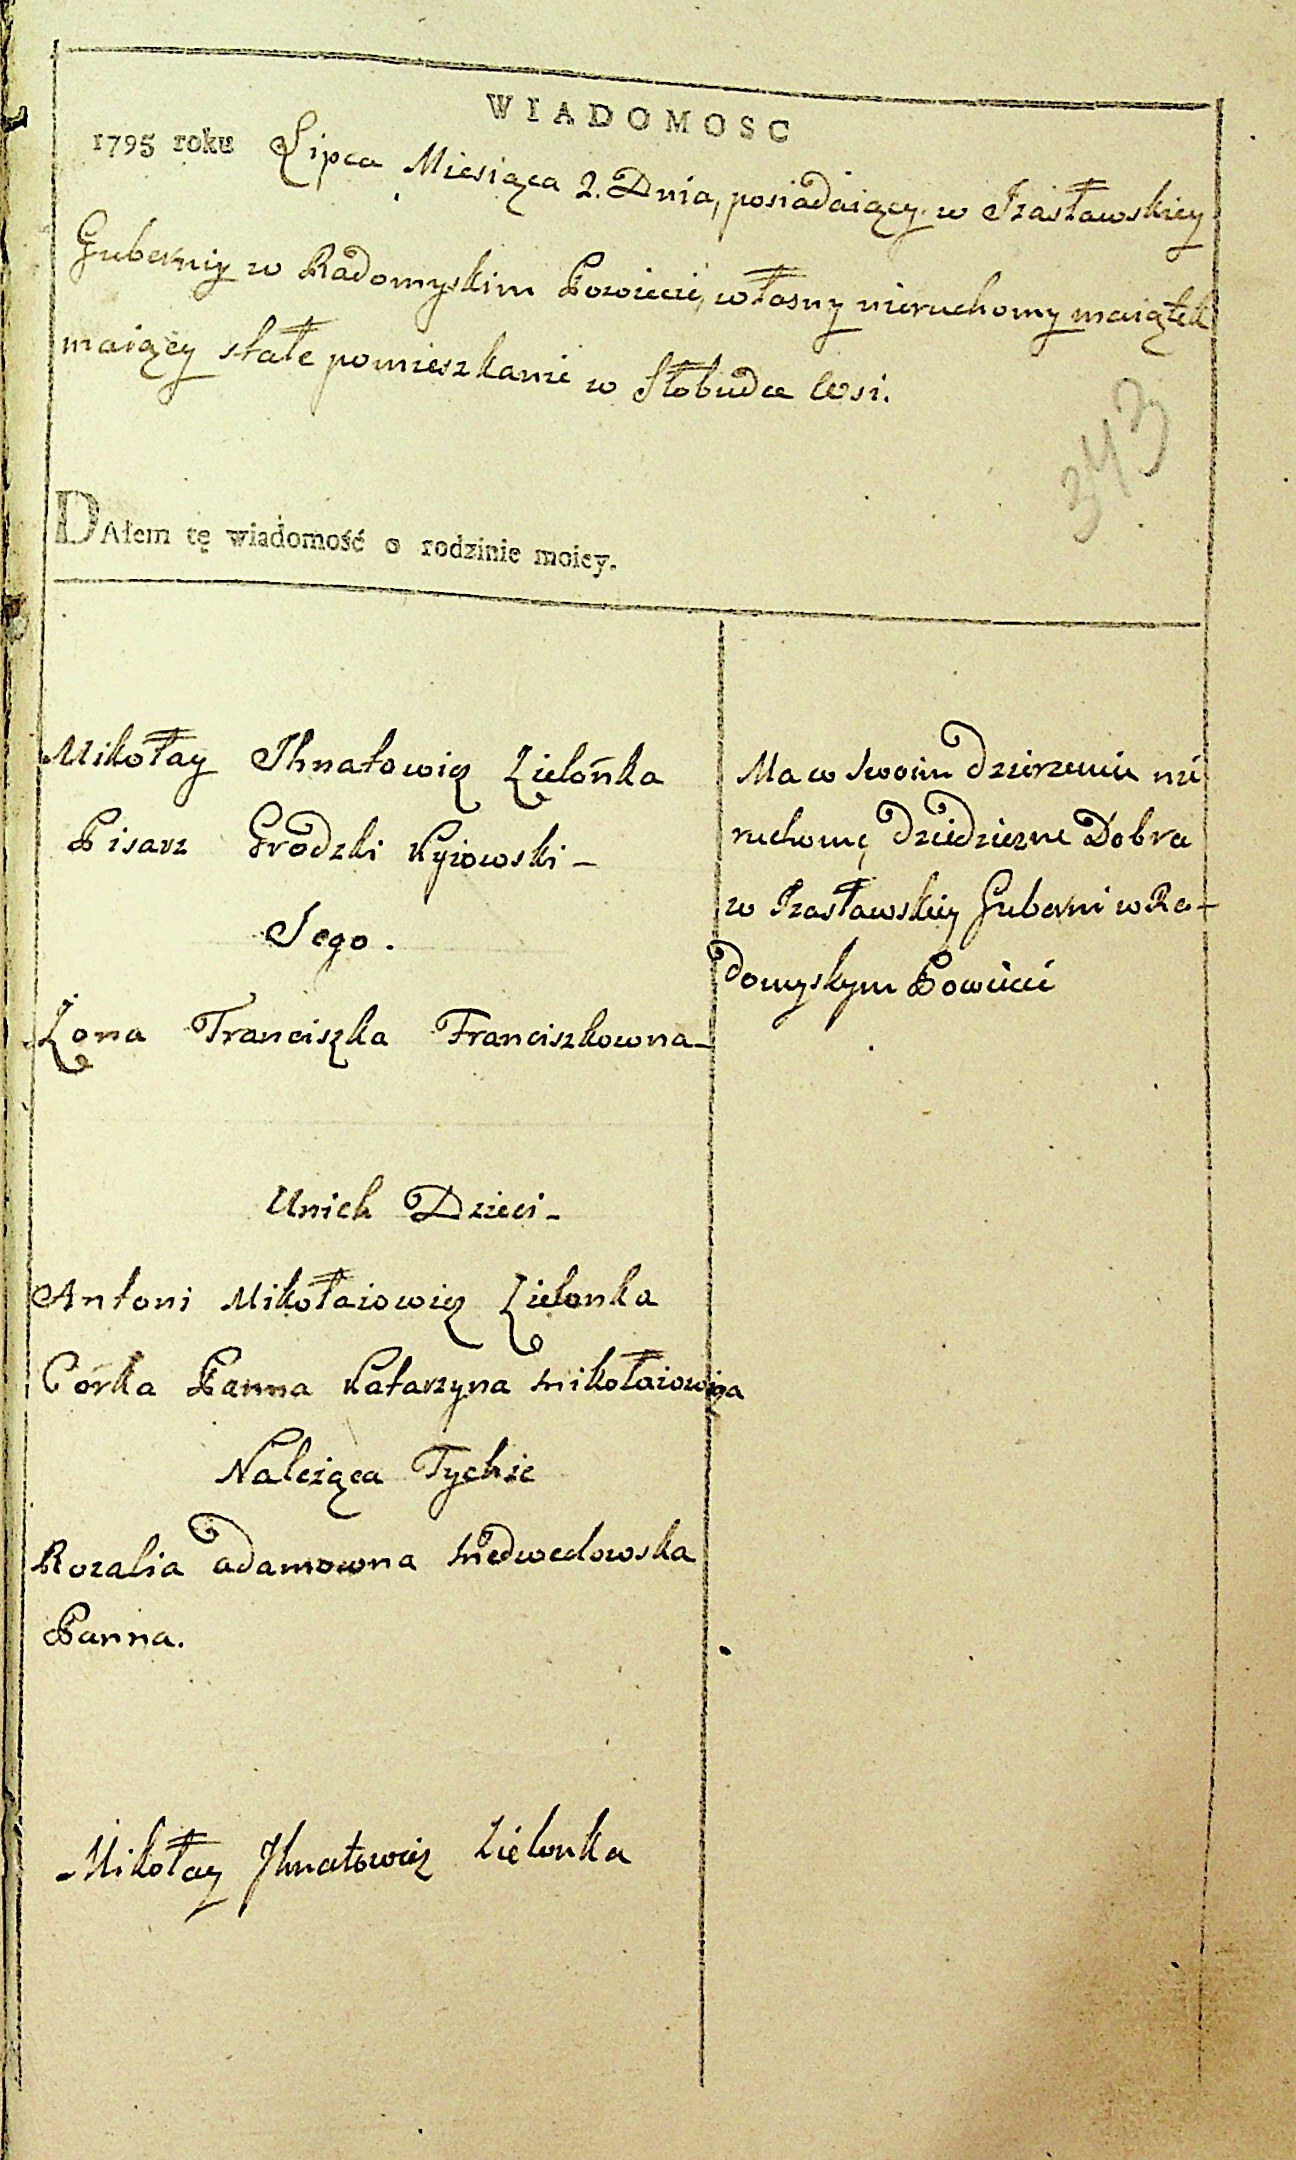 WIADOMOSC
1795 roku Lipca Miesiąca 2. Dnia, posiadaiący w Izasławskiey
Guberniy w Radomyskim Powiecie, własny nieruchomy maiątek
maiący stałe pomieszkanie w Słobudce Wsi.
343
DAłem tę wiadomość o rodzinie moiey.
Mikołay Ihnatowicz Zielónka
Pisarz Grodzki Kyiowski –
Jego.
Żona Franciszka Franciszkowna –
Unich Dzieci –
Antoni Mikołaiowicz Zielonka
Córka Panna Katarzyna Mikołaiowna
Należąca Tychże
Rozalia adamowna Medwedowska
Panna.
Mikołay Ihnatowicz Zielonka
Ma w Swoim dzierzeniu nie
ruchomę dziedziczne Dobra
w Izasławskiey Guberni w Ra–
domyskym Powiecie